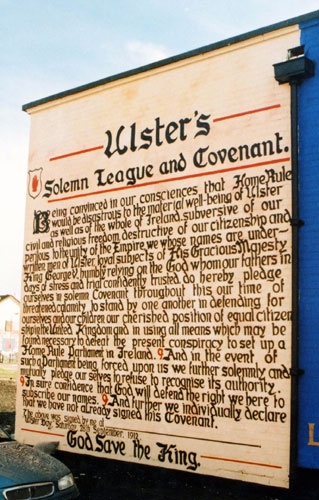 Ulster's
Solemn League and Covenant.
Being convinced in our consciences that Home Rule
would be disastrous to the material well-being of Ulster
as well as of the whole of Ireland, subversive of our
civil and religious freedom destructive of our citizenship and
perilous to the unity of the Empire, we whose names are under-
written men of Ulster loyal subjects of His Gracious Majesty
King George V, humbly relying on the God whom our fathers in
days of stress and trial confidently trusted, do hereby pledge
ourselves in solemn Covenant throughout this our time of
threatened calamity to stand by one another in defending for
ourselves and our children our cherished position of equal citizen
ship in the United Kingdom and in using all means which may be
found necessary to defeat the present conspiracy to set up a
Home Rule Parliament in Ireland. And in the event of
such a Parliament being forced upon us we further solemnly and
mutually pledge ourselves to refuse to recognise its authority
In sure confidence that God will defend the right we here to
subscribe our names. And further we individually declare
that we have not already signed this Covenant.
The above was signed by me at
Ulster Day. Saturday 28th September, 1912
God Save the King.